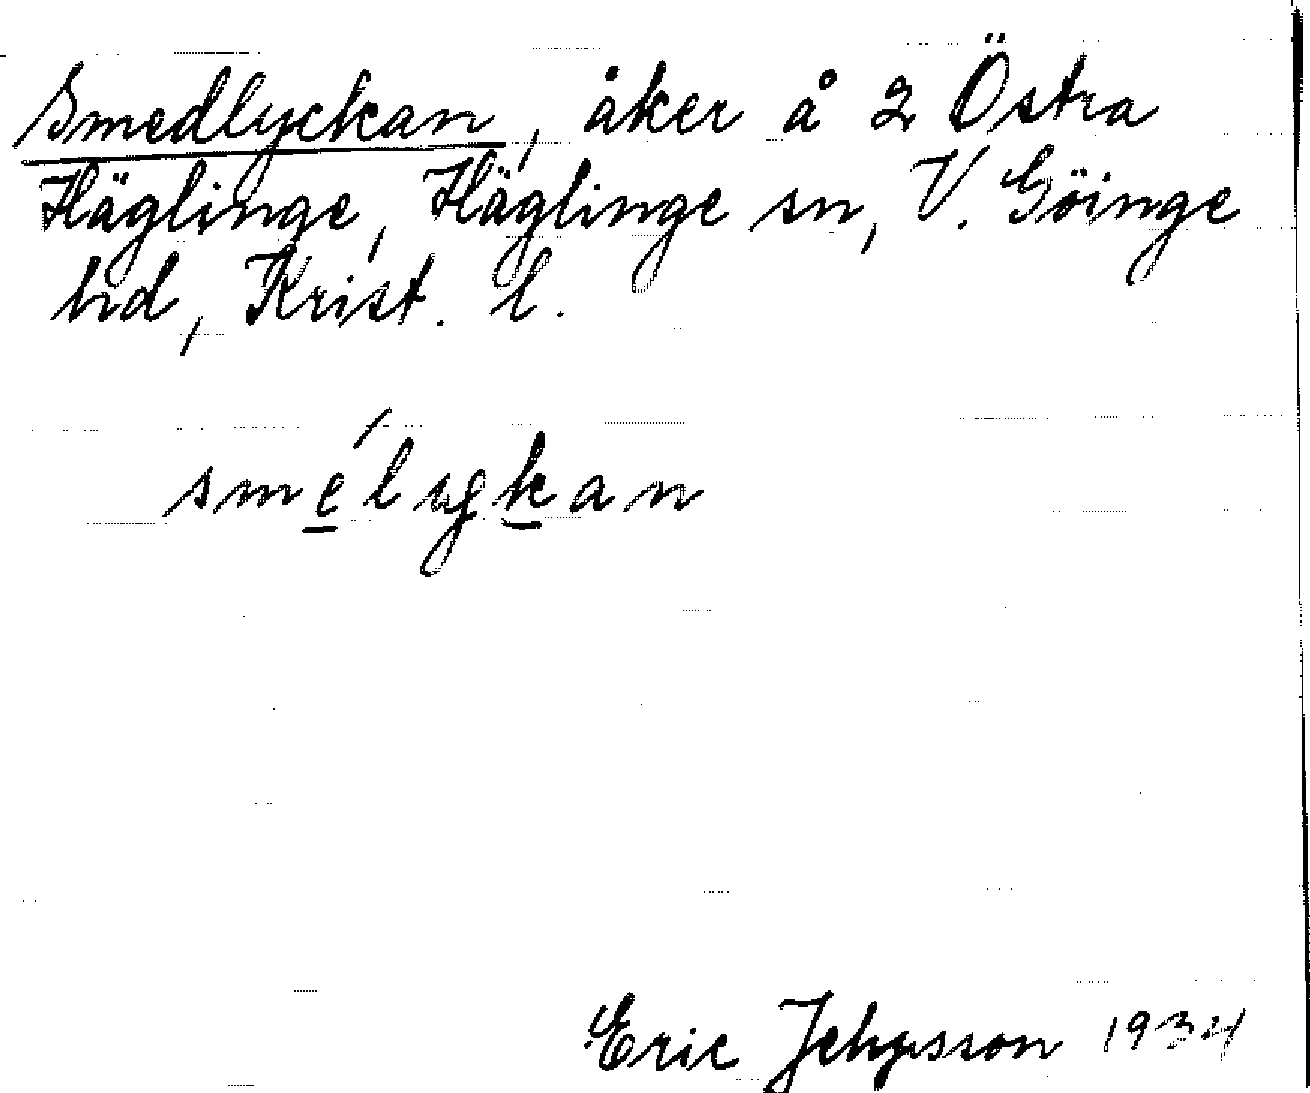 Smedlyckan, åker å 2 Östra
Häglinge, Häglinge sn, V. Göinge
hd, Krist. l.
smélykan
Eric 1934